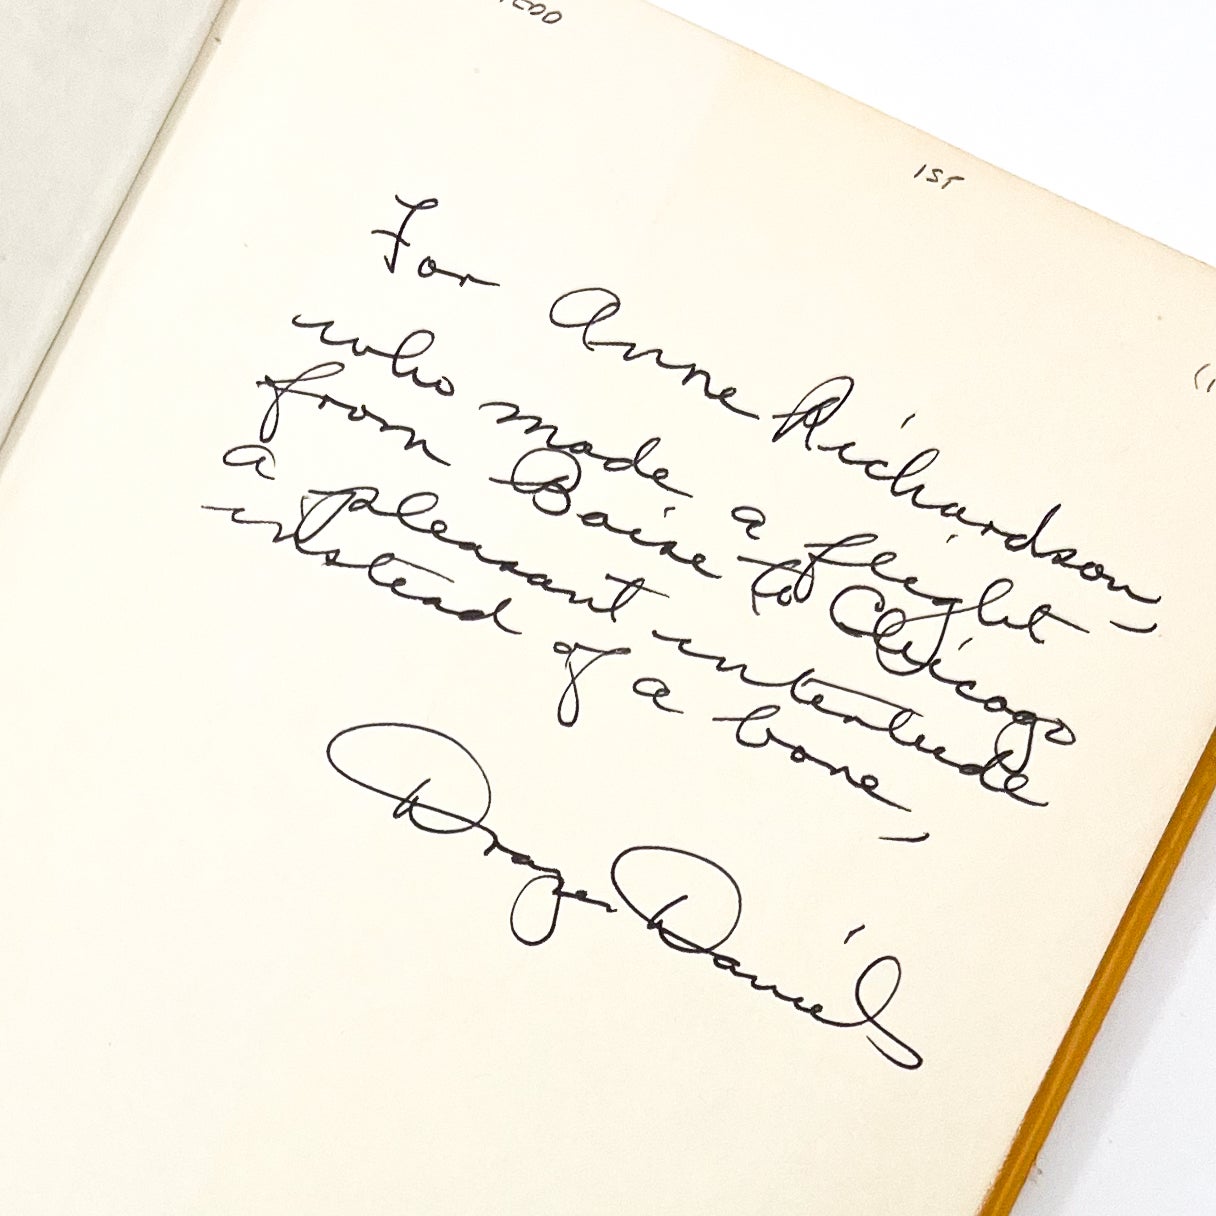 1ST
For Anne Richardson,
who made a flight
from Boise to Chicago
a pleasant interlude
instead of a bore,
Drayer Daniels